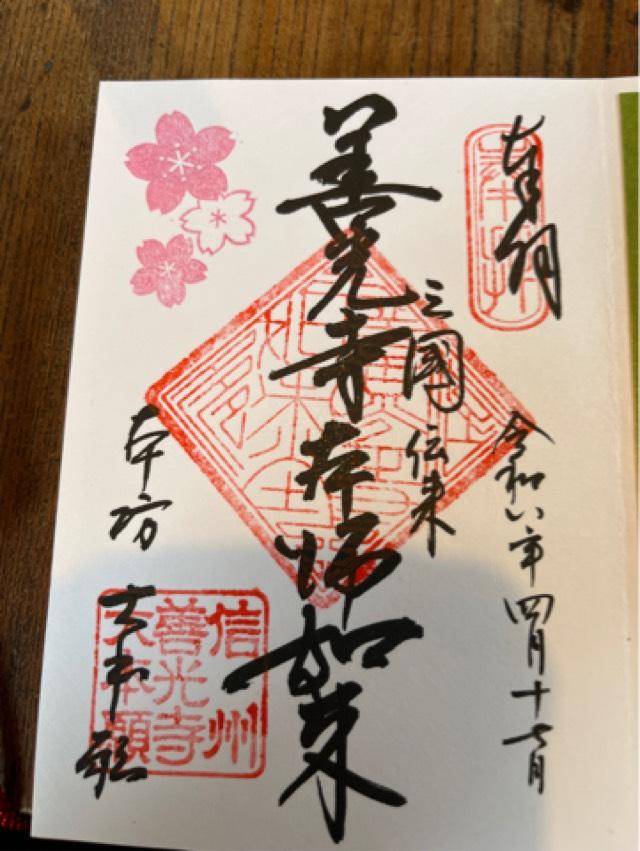 奉拝
令和六年四月十七日
三國伝来
善光寺本師如来
本坊
大本願
信州
善光寺
大本願